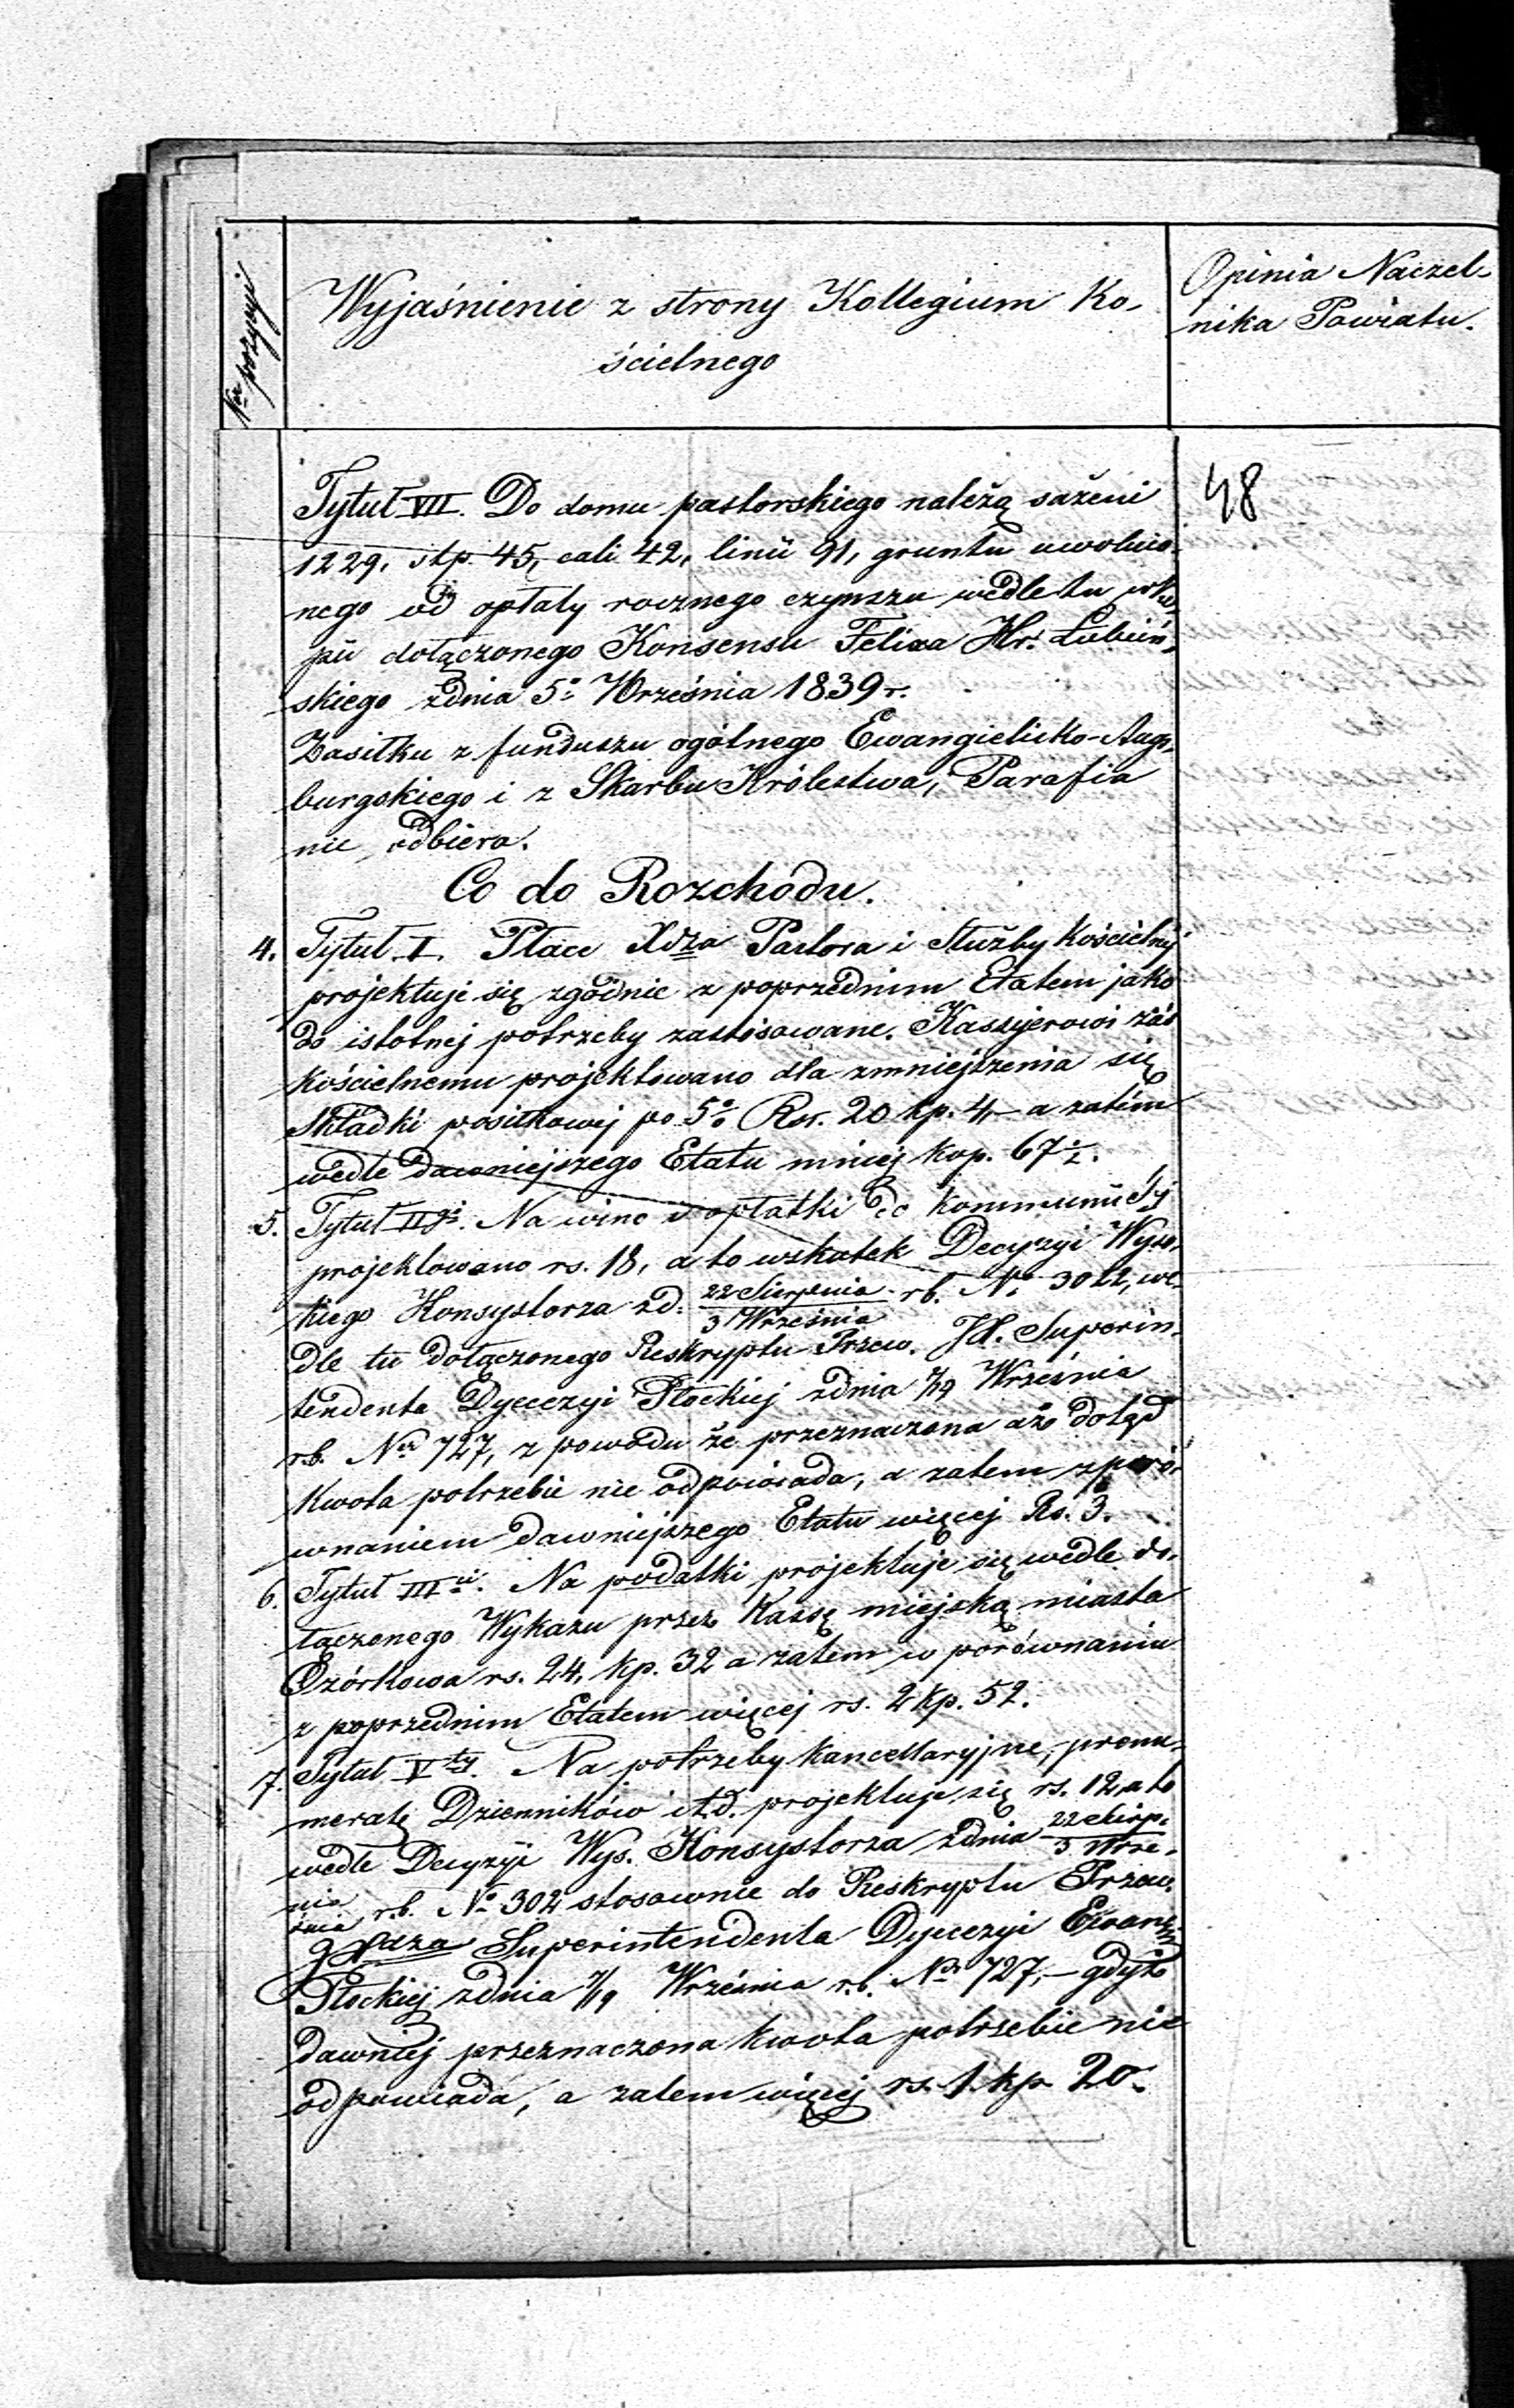 Nr pozycyi
Wyjaśnienie z strony Kollegium Ko-
ścielnego
Opinia Naczel-
nika Powiatu.
48
Tytuł VII. Do domu pastorskiego należą sążeni
1229, stp. 45, cali 42, linii 91, gruntu uwolnio-
nego od opłaty rocznego czynszu wedle tu w ko-
pii dołączonego Konsensu Felixa Hr. Łubień-
skiego zdnia 5o Września 1839 r.
Zasiłku z funduszu ogólnego Ewangielicko-Augs-
burgskiego i z Skarbu Królestwa, Parafia
nie odbiera.
Co do Rozchodu.
4. Tytuł I. Płace Xdza Pastora i Służby Kościelnej
projektuje się zgodnie z poprzednim Etatem jako
do istotnej potrzeby zastosowane. Kassyerowi zaś
Kościelnemu projektowano dla zmniejszenia się
Składki posiłkowej po 5% Rs. 20 kp. 4,– a zatém
wedle dawniejszego Etatu mniej kop. 67½.
5. Tytuł IIgi. Na wino i opłatki do kommunii Śtj
projektowano rs. 18, a to wskutek Decyzyi Wyso-
kiego Konsystorza zd. 22 Sierpnia/3 Września rb. No 3022, we-
dle tu dołączonego Reskryptu Przew. JX. Superin-
tendenta Dyecezyi Płockiej zdnia 7/19 Września
r.b. Nr 727, z powodu że przeznaczona aż dotąd
Kwota potrzebie nie odpowiada, a zatem z poró-
wnaniem dawniejszego Etatu więcej Rs. 3.
6. Tytuł IIIci. Na podatki projektuje się wedle do-
łączonego Wykazu przez Kassę miejską miasta
Ozórkowa rs. 24, kp. 32 a zatem w porównaniu
z poprzednim Etatem więcej rs. 2 kp. 52.
7. Tytuł Vty. Na potrzeby kancellaryjne, prenu-
meratę Dzienników itd. projektuje się rs. 12, a to
wedle Decyzyi Wys. Konsystorza zdnia 22 Sierp-/3 Wrze-
nia/śnia r.b. No 302 stosownie do Reskryptu Przew.
JXdza Superintendenta Dyecezyi Ewang.
Płockiej zdnia 7/19 Września r.b. Nr 727,– gdyż
dawniej przeznaczona kwota potrzebie nie
odpowiada, a zatem więcej rs. 1 kp. 20.